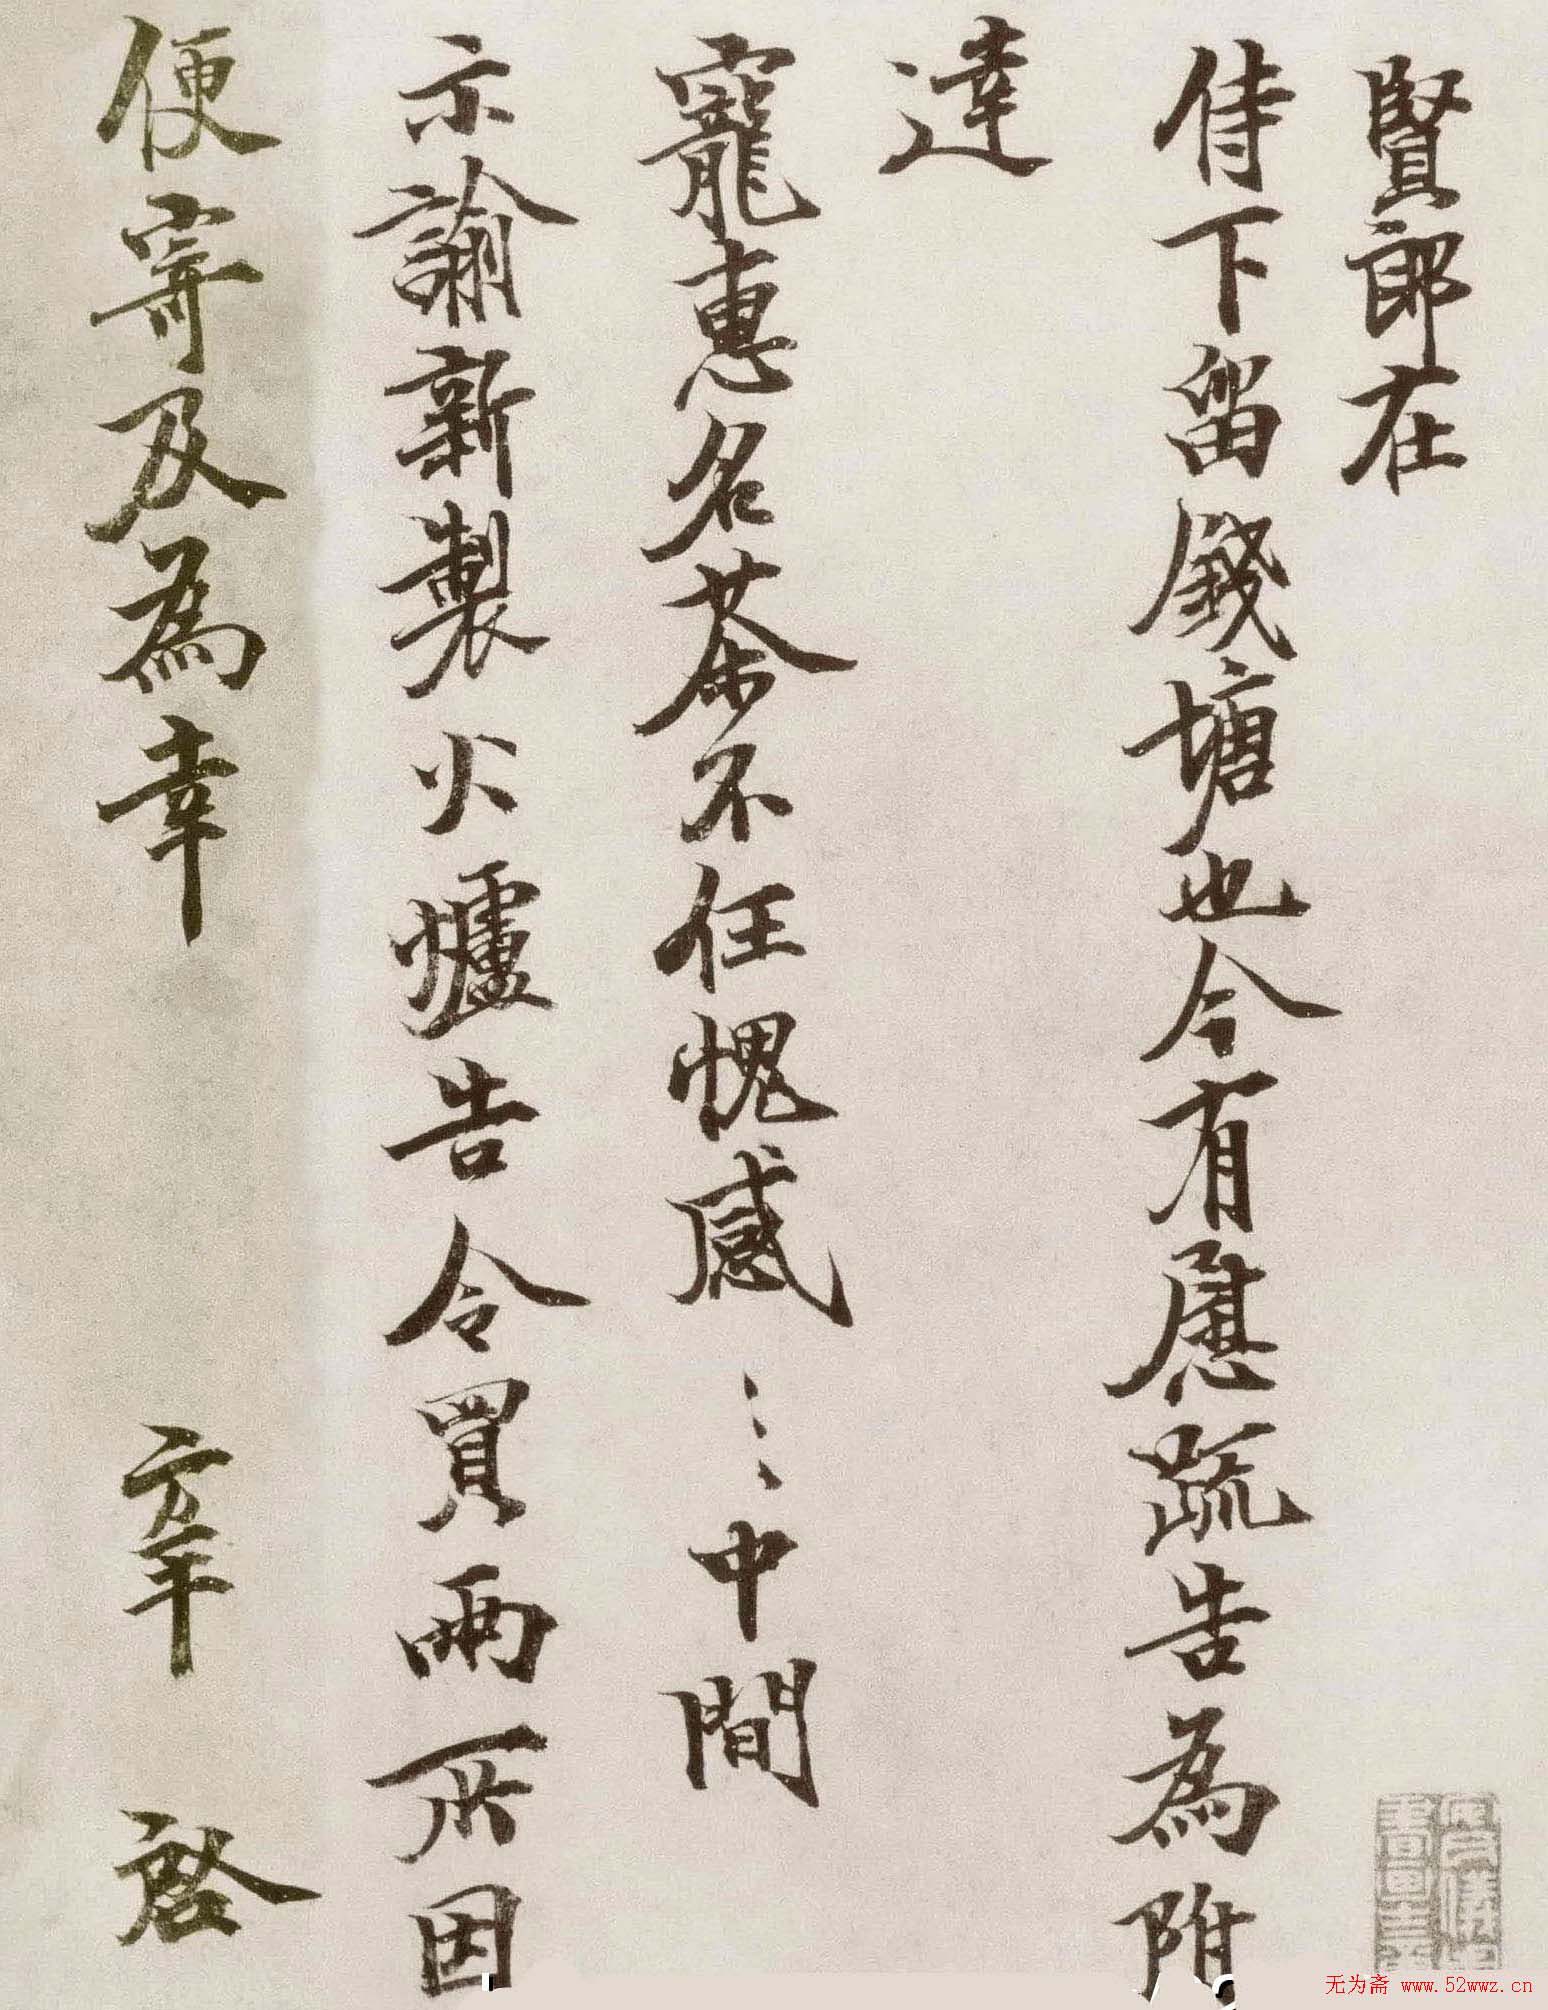 賢郎在
侍下留錢塘也今有慰疏告為附
達
寵惠名茶不任愧感⋮中間
示諭新製火爐告令買兩所因
便寄及為幸 啓
无为斋 www.52wwz.cn